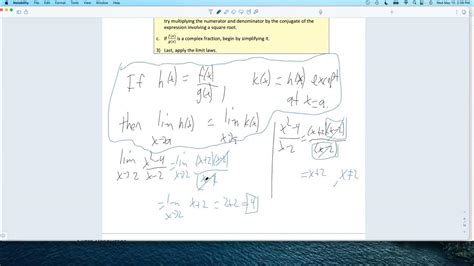 Notability
Wed May 13 2:38 PM
try multiplying the numerator and denominator by the conjugate of the
expression involving a square root.
c. If f(x)/g(x) is a complex fraction, begin by simplifying it.
3) Last, apply the limit laws.
If h(x) = f(x)/g(x), k(x) = h(x) except
at x=a.
then lim x→a h(x) = lim x→a k(x)
lim x→2 x²-4/x-2 = lim x→2 (x+2)(x-2)/x-2
= lim x→2 x+2 = 2+2 = 4
x²-4/x-2 = (x+2)(x-2)/(x-2)
= x+2, x≠2